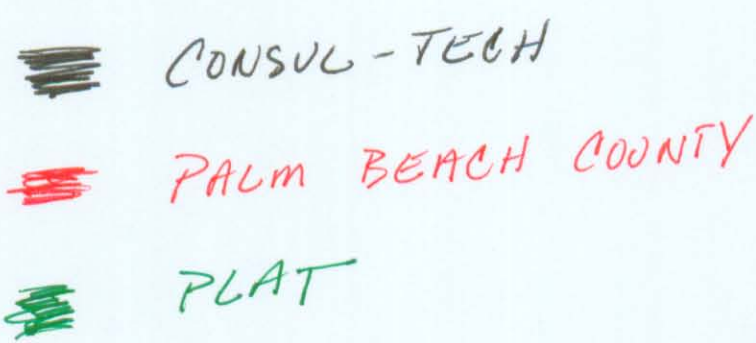 CONSUL-TECH
PALM BEACH COUNTY
PLAT